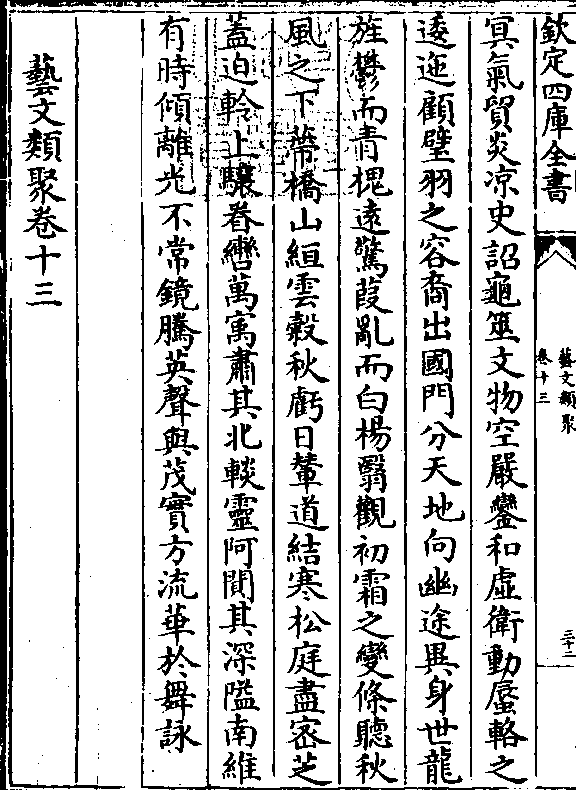 欽定四庫全書
藝文類聚
卷十三
三十二
冥氣貿炎凉史詔龜筮文物空嚴鑾和虛衛動蜃輅之
逶迤顧璧羽之容裔出國門分天地向幽途異身世龍
旌鬱而青槐遠驚葭亂而白楊翳觀初霜之變條聽秋
風之下蔕橋山絙雲穀秋虧日輦道結寒松庭盡宻芝
蓋迫軨上驤眷轡萬寓肅其北輚靈阿閴其深隘南維
有時傾離光不常鏡騰英聲與茂實方流華於舞詠
藝文類聚卷十三